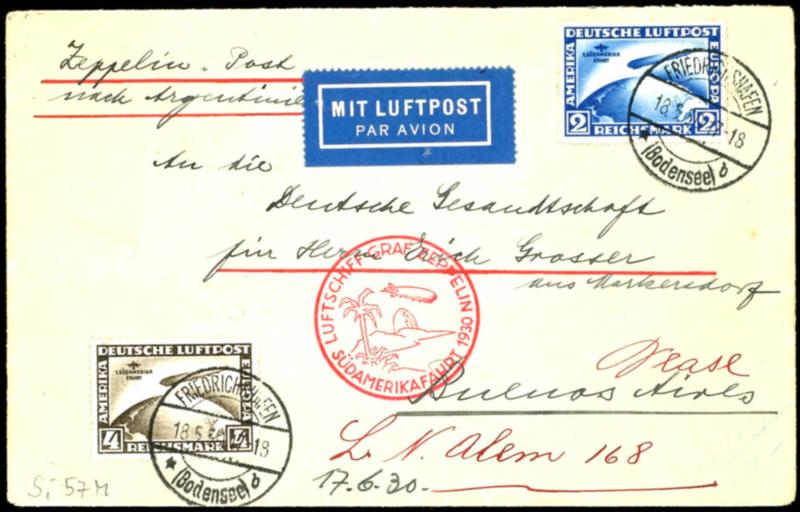 Zeppelin-Post
nach Argentinien
MIT LUFTPOST
PAR AVION
DEUTSCHE LUFTPOST
AMERIKA
EUROPA
1. SÜDAMERIKA
FAHRT
2 REICHSMARK 2
FRIEDRICHSHAFEN
18.5.30 17-18
* (Bodensee) d
An die
Deutsche Gesandtschaft
für Herrn Erich Grosser
aus Markersdorf
LUFTSCHIFF GRAF ZEPPELIN
SÜDAMERIKAFAHRT 1930
DEUTSCHE LUFTPOST
AMERIKA
EUROPA
1. SÜDAMERIKA
FAHRT
4 REICHSMARK 4
FRIEDRICHSHAFEN
18.5. -18
* (Bodensee) d
Vease
Buenos Aires
L. N. Alem 168
17.6.30.
Si 57M